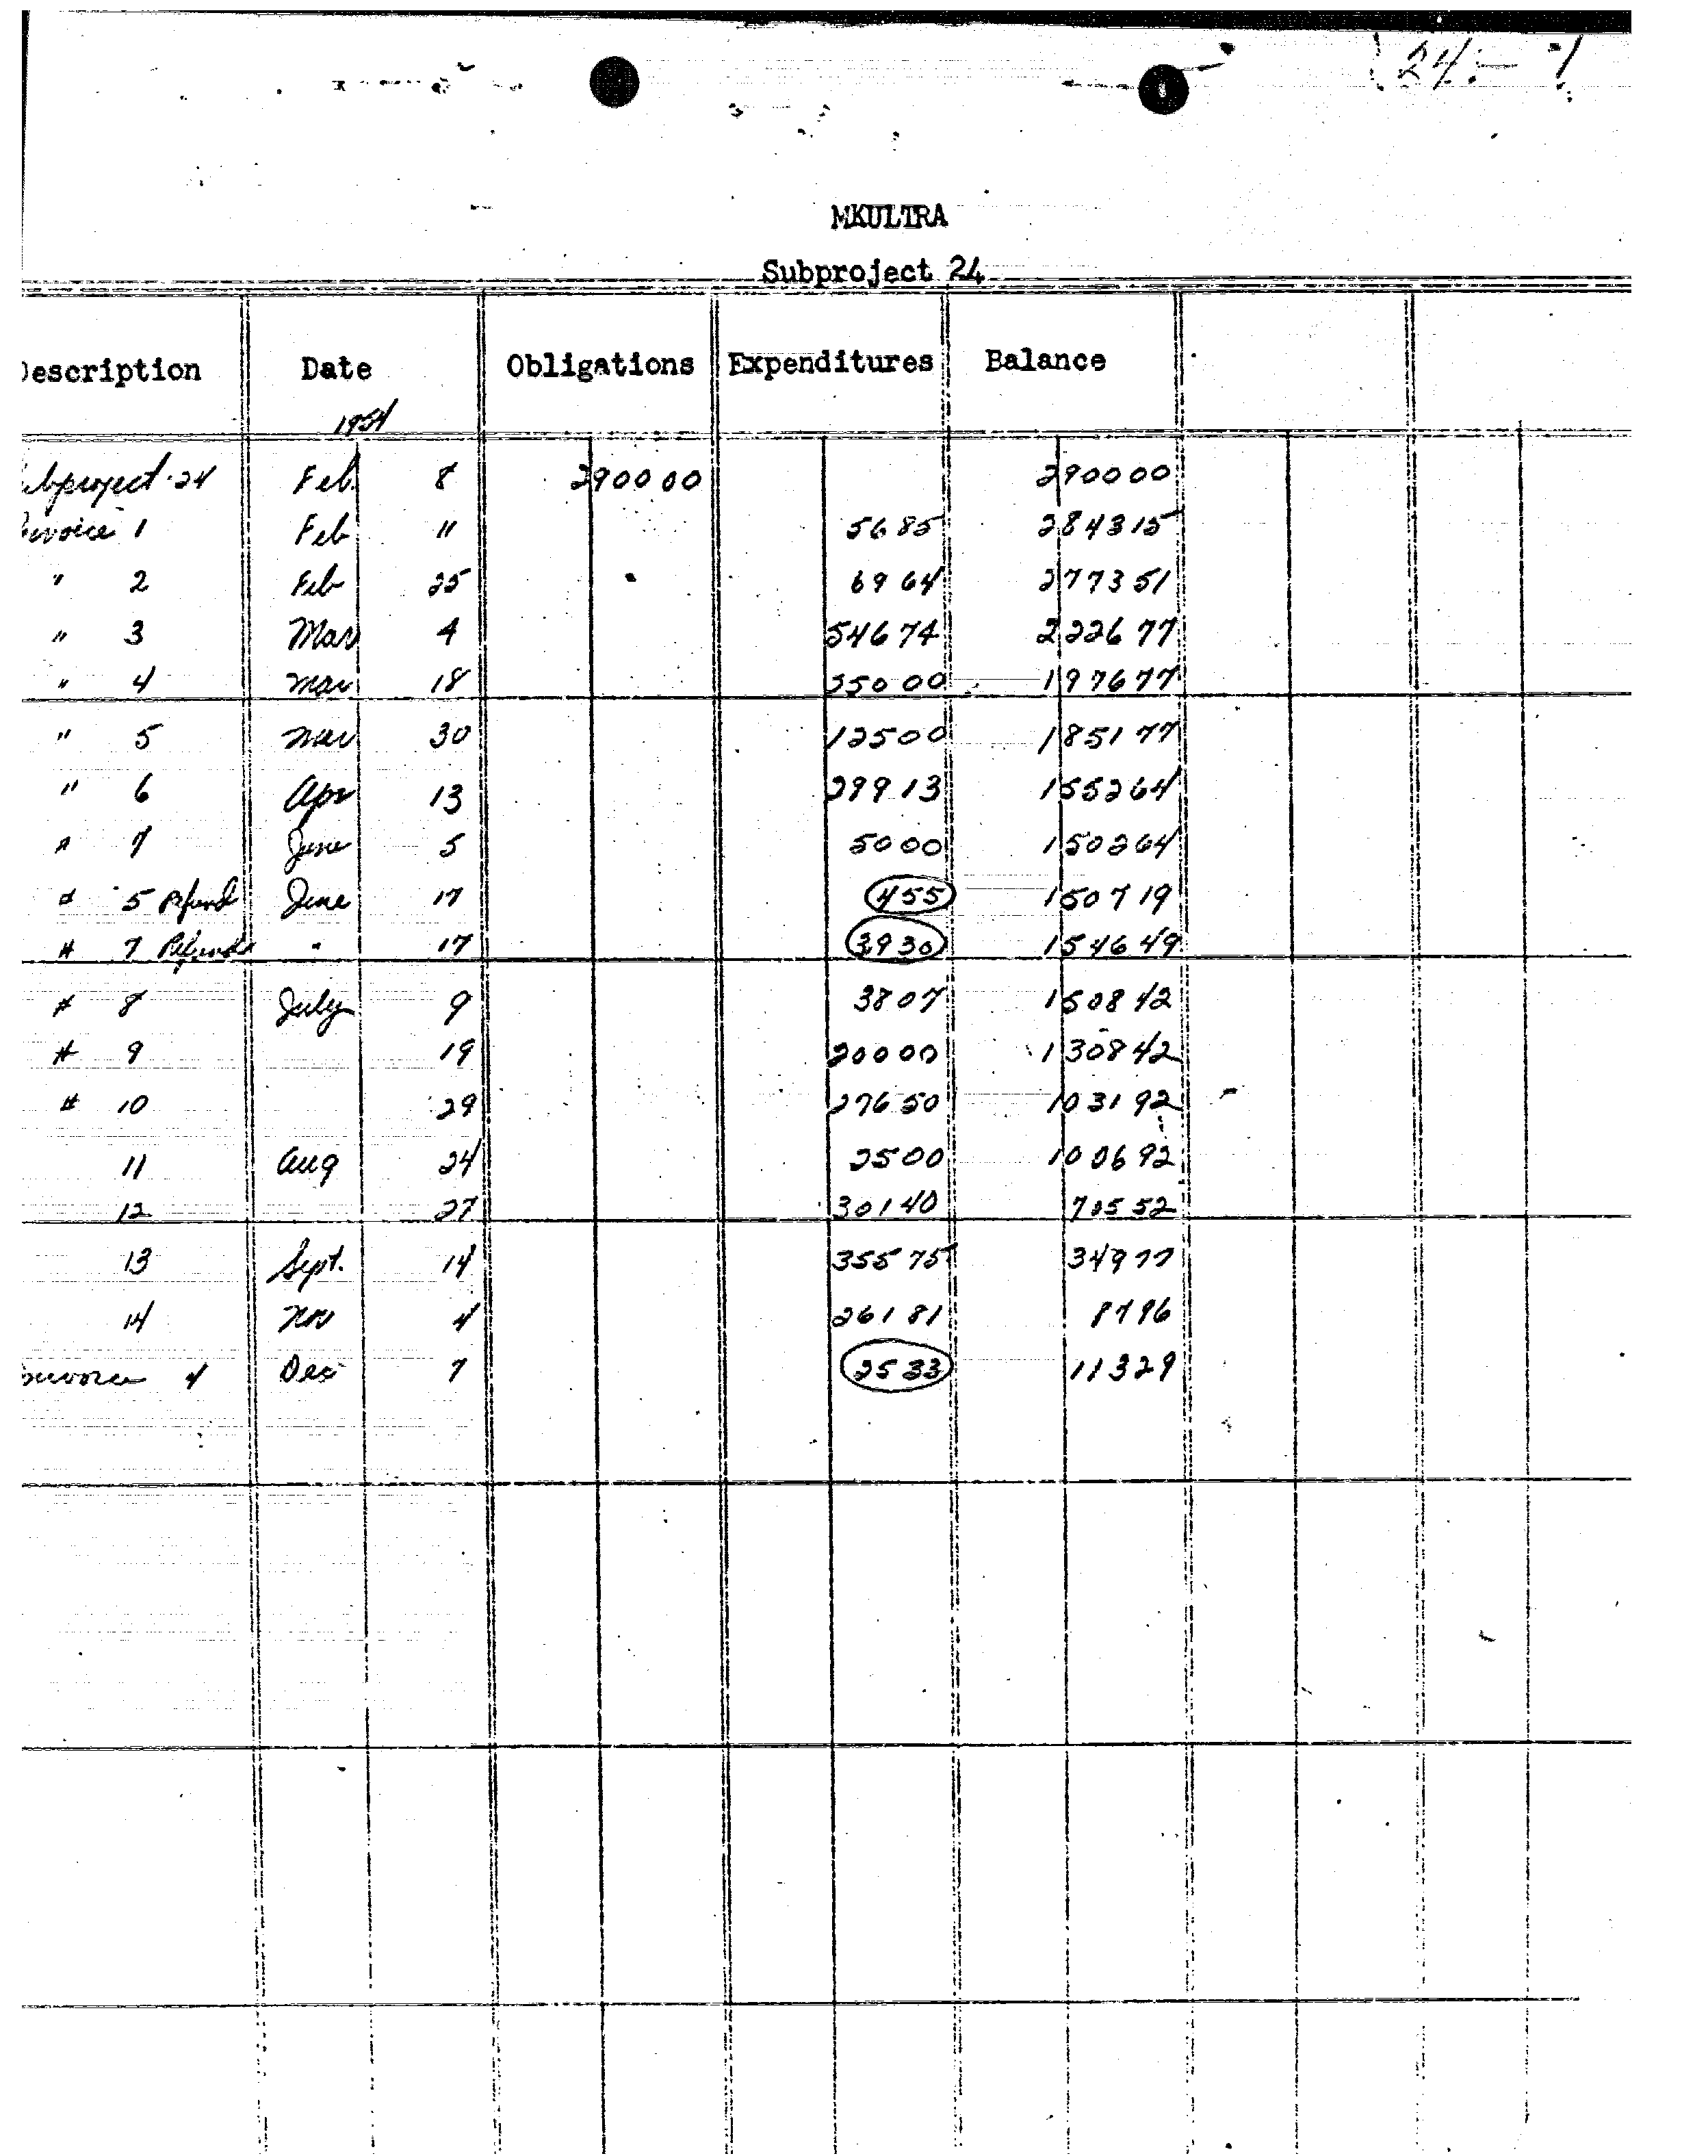 24-7
MKULTRA
Subproject 24
Description Date Obligations Expenditures Balance
1954
Subproject 24 Feb. 8 2900 00 2900 00
Invoice 1 Feb 11 56 85 2843 15
" 2 Feb 25 69 64 2773 51
" 3 Mar 4 546 74 2226 77
" 4 Mar 18 250 00 1976 77
" 5 Mar 30 125 00 1851 77
" 6 Apr 13 299 13 1552 64
" 7 June 5 50 00 1502 64
# 5 Refund June 17 4 55 1507 19
# 7 Refund " 17 39 30 1546 49
# 8 July 9 38 07 1508 42
# 9 19 200 00 1308 42
# 10 29 276 50 1031 92
11 Aug 24 25 00 1006 92
12 27 301 40 705 52
13 Sept. 14 355 75 349 77
14 Nov 4 261 81 87 96
Invoice 4 Dec 7 25 33 113 29